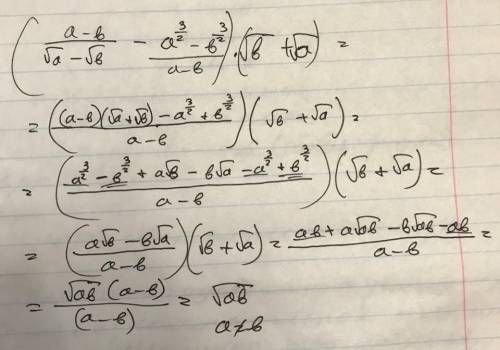 ( (a-b)/(√a - √b) - (a^(3/2) - b^(3/2))/(a-b) ) · (√b + √a) =
= ( ((a-b)(√a+√b) - a^(3/2) + b^(3/2))/(a-b) ) (√b + √a) =
= ( (a^(3/2) - b^(3/2) + a√b - b√a - a^(3/2) + b^(3/2))/(a-b) ) (√b + √a) =
= ( (a√b - b√a)/(a-b) ) (√b + √a) = (ab + a√ab - b√ab - ab)/(a-b) =
= (√ab (a-b))/((a-b)) = √ab
a≠b